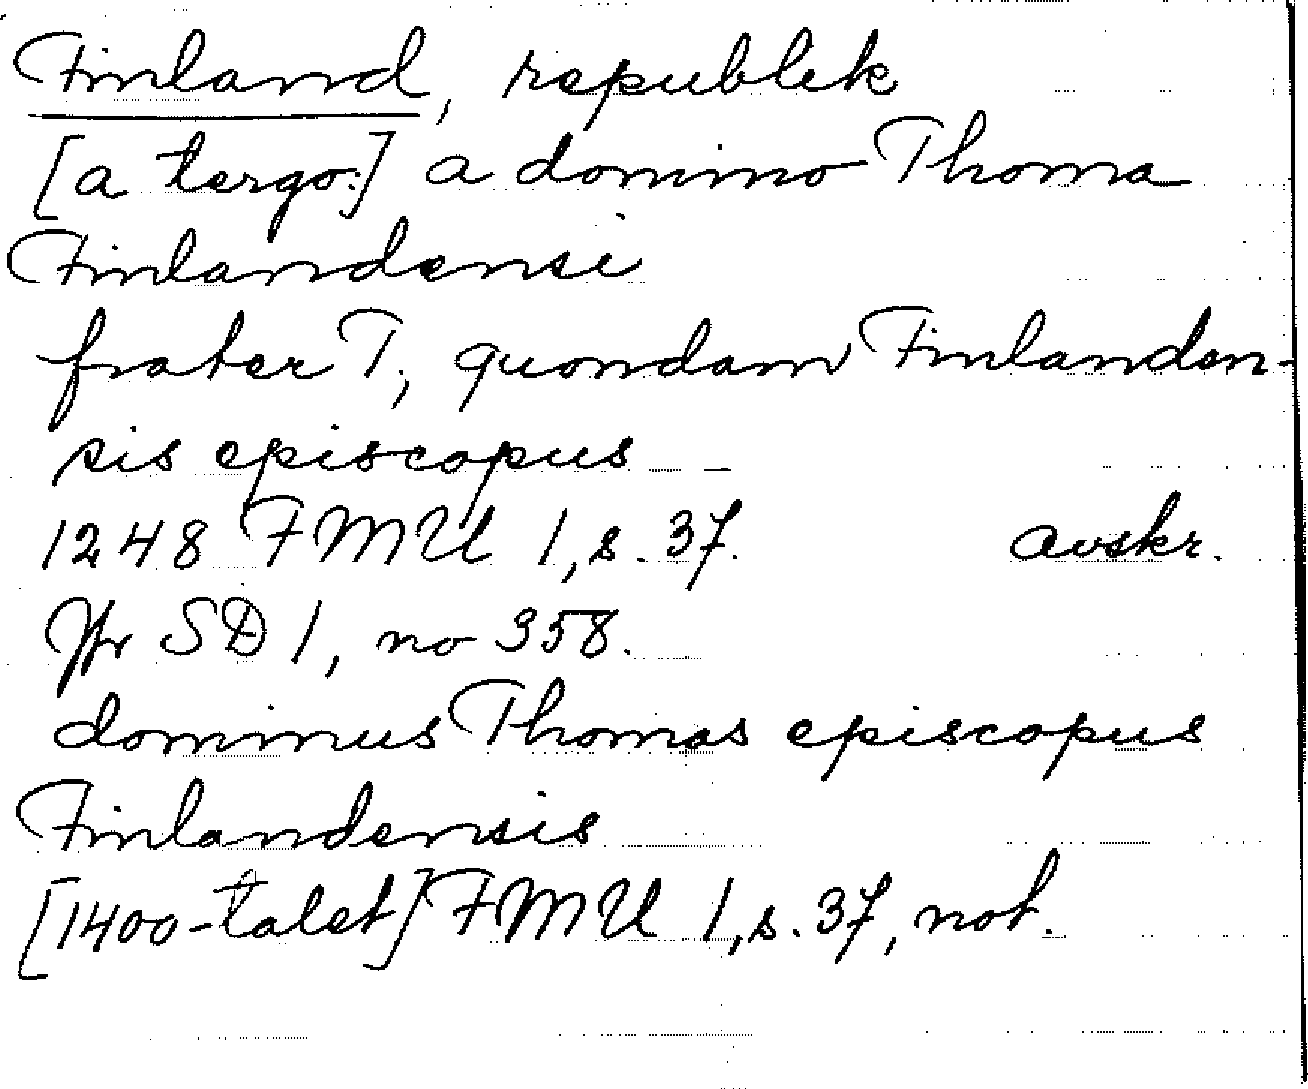 Finland, republik
[a tergo:] a domino Thoma
Finlandensi
frater T., quondam Finlanden-
sis episcopus
1248 FMU 1, s. 37. avskr.
Jfr SD 1, no 358.
dominus Thomas episcopus
Finlandensis
[1400-talet] FMU 1, s. 37, not.